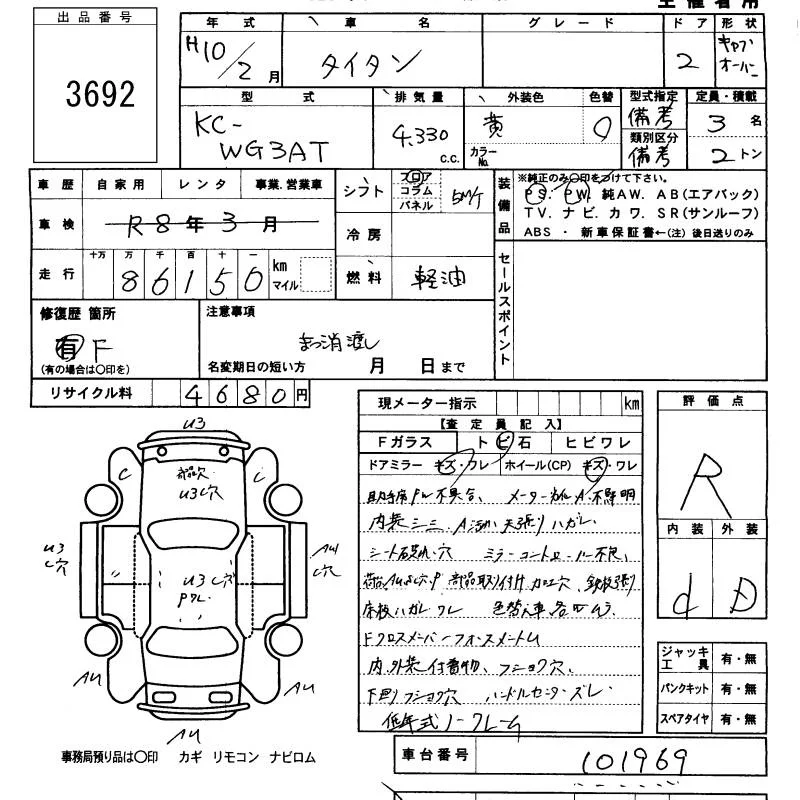 出品番号
3692
年式 車名 グレード ドア 形状
H10/2月 タイタン 2 キャブオーバー
型式 排気量 外装色 色替 型式指定 定員・積載
KC-WG3AT 4.330 c.c. 黄 備考 3名
カラーNo. 類別区分
備考 2トン
車歴 自家用 レンタ 事業.営業車
車検 R8年3月
走行 十万 万 千 百 十 一
86150 km マイル
シフト フロア コラム パネル 5M/T
冷房
燃料 軽油
装備品 ※純正のみ○印をつけて下さい。
PS. PW. 純AW. AB(エアバック)
TV. ナビ. カワ. SR(サンルーフ)
ABS ・ 新車保証書←(注) 後日送りのみ
セールスポイント
修復歴 箇所
有 F
(有の場合は○印を)
注意事項
まっ消渡し
名変期日の短い方 月 日まで
リサイクル料 4680円
現メーター指示 km
【査定員記入】
Fガラス トビ石 ヒビワレ
ドアミラー キズ・ワレ ホイール(CP) キズ・ワレ
助手席PW不具合、 メーター
内装シミ 天張りハガレ
シート 穴 ミラーコントローラー不良、
部品取り付け加工穴、鉄板張り
床板ハガレワレ 色替え車
Fクロスメンバー
内外装付着物、フショク穴、
下回りフショク穴 ハンドルセンターズレ
低年式ノークレーム
評価点
R
内装 外装
d D
ジャッキ工具 有・無
パンクキット 有・無
スペアタイヤ 有・無
車台番号 101969
U3
C
部品欠
U3穴
U3
穴
U3穴
PワレAU
穴
AU
AU
AU
事務局預り品は○印 カギ リモコン ナビロム